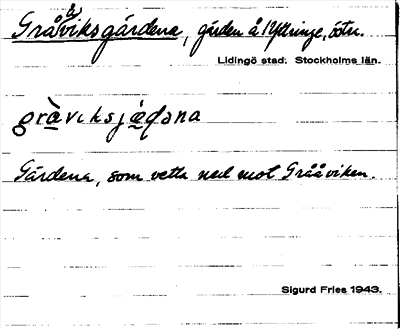 Gråviksgärdena, gärden å Yttringe, östr.
Lidingö stad. Stockholms län.
gràviksjædəna
Gärdena, som vetta ned mot Grååviken.
Sigurd Fries 1943.